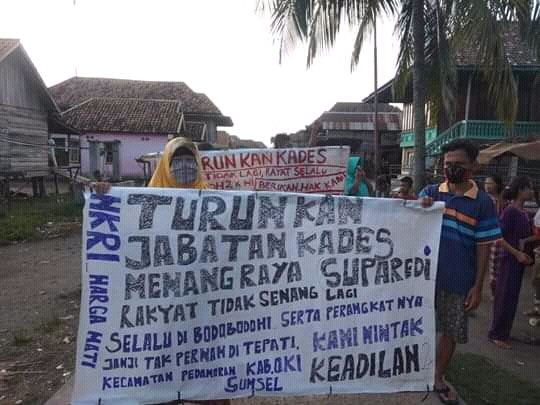 RUNKAN KADES
TIDAK LAGI, RAYAT SELALU
BERIKAN. HAK
NKRI HARGA MATI
TURUNKAN
JABATAN KADES
MENANG RAYA SUPAREDI
RAKYAT TIDAK SENANG LAGI
SELALU DI BODOBODOHI SERTA PERANGKAT NYA
JANJI TAK PERNAH DI TEPATI, KAMI MINTAK
KECAMATAN PEDAMARAN KAB,OKI KEADILAN
SUMSEL